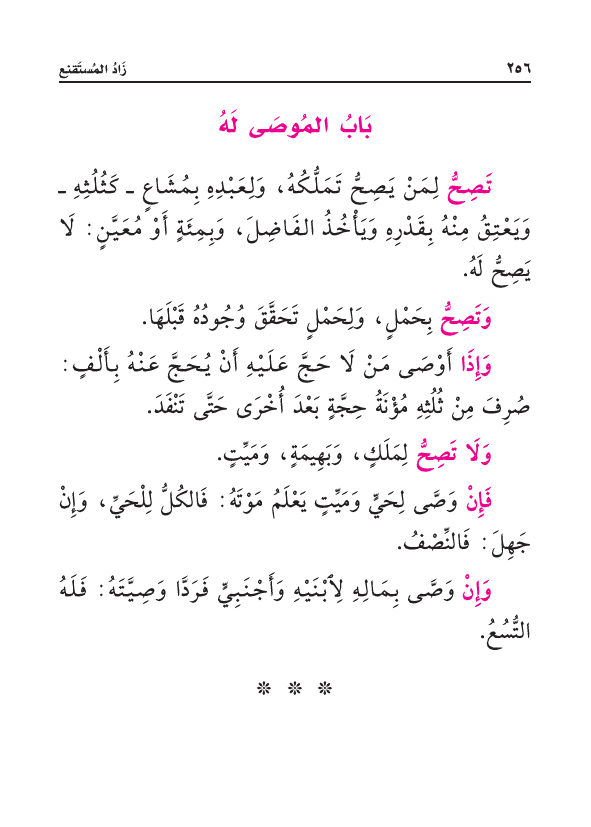 ٢٥٦ زَادُ المُستَقنِع
بَابُ المُوصَى لَهُ
تَصِحُّ لِمَنْ يَصِحُّ تَمَلُّكُهُ، وَلِعَبْدِهِ بِمُشَاعٍ ـ كَثُلُثِهِ ـ
وَيَعْتِقُ مِنْهُ بِقَدْرِهِ وَيَأْخُذُ الفَاضِلَ، وَبِمِئَةٍ أَوْ مُعَيَّنٍ: لَا
يَصِحُّ لَهُ.
وَتَصِحُّ بِحَمْلٍ، وَلِحَمْلٍ تَحَقَّقَ وُجُودُهُ قَبْلَهَا.
وَإِذَا أَوْصَى مَنْ لَا حَجَّ عَلَيْهِ أَنْ يُحَجَّ عَنْهُ بِأَلْفٍ:
صُرِفَ مِنْ ثُلُثِهِ مُؤْنَةُ حِجَّةٍ بَعْدَ أُخْرَى حَتَّى تَنْفَدَ.
وَلَا تَصِحُّ لِمَلَكٍ، وَبَهِيمَةٍ، وَمَيِّتٍ.
فَإِنْ وَصَّى لِحَيٍّ وَمَيِّتٍ يَعْلَمُ مَوْتَهُ: فَالكُلُّ لِلْحَيِّ، وَإِنْ
جَهِلَ: فَالنِّصْفُ.
وَإِنْ وَصَّى بِمَالِهِ لِٱبْنَيْهِ وَأَجْنَبِيٍّ فَرَدَّا وَصِيَّتَهُ: فَلَهُ
التُّسُعُ.